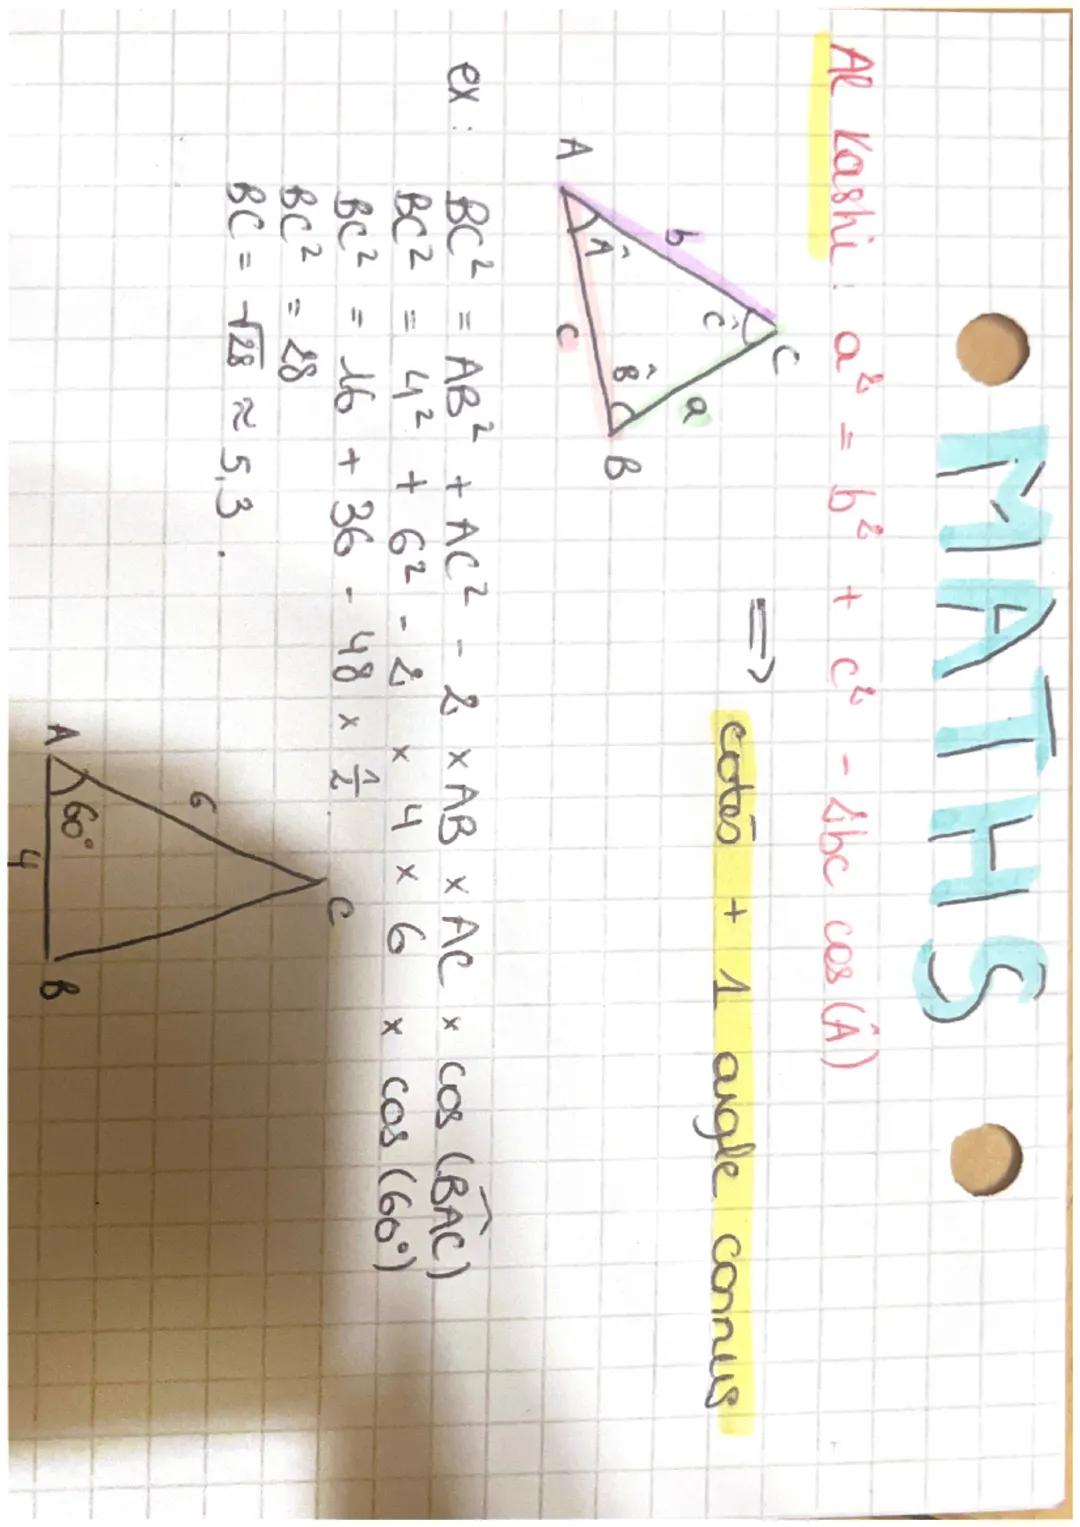 MATHS
Al Kashi : a² = b² + c² - 2bc cos (Â)
⇒ côtés + 1 angle connus
C
b
Ĉ
a
Â
B̂
A
c
B
ex : BC² = AB² + AC² - 2 × AB × AC × cos (BAC)
BC² = 4² + 6² - 2 × 4 × 6 × cos (60°)
BC² = 16 + 36 - 48 × 1/2
BC² = 28
BC = √28 ≈ 5,3 .
C
6
60°
A
4
B